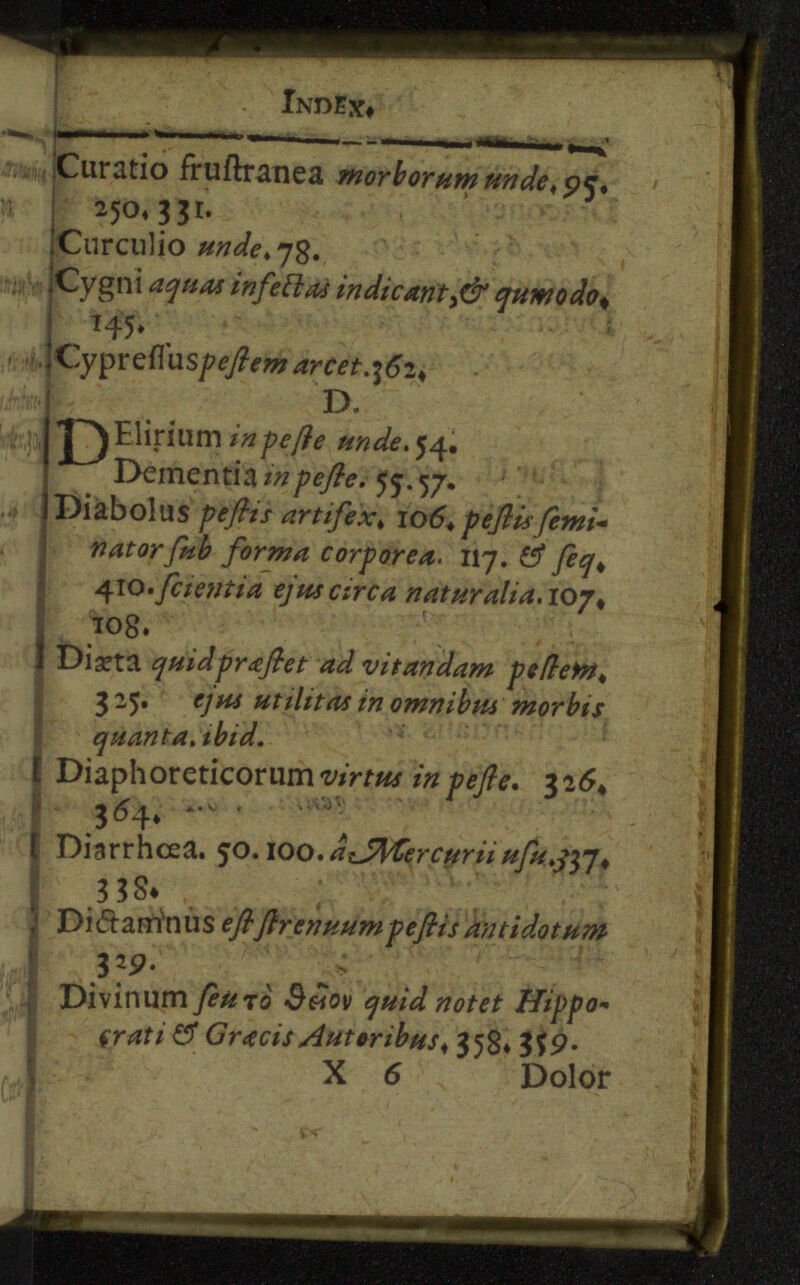 INDEX.
Curatio fruſtranea morborum unde, 95.
250. 331.
Curculio unde, 78.
Cygni aquas infectas indicant, & qumodo,
145.
Cypreſſus peſtem arcet. 362,
D.
DElirium in peſte unde. 54.
Dementia in peſte. 55. 57.
Diabolus peſtis artifex, 106, peſtis ſemi-
nator ſub forma corporea. 117. & ſeq,
410. ſcientia ejus circa naturalia. 107,
108.
Diæta quid præſtet ad vitandam peſtem,
325. ejus utilitas in omnibus morbis
quanta. ibid.
Diaphoreticorum virtus in peſte. 326,
364.
Diarrhœa. 50. 100. à Mercurii uſu. 337,
338.
Dictamnus eſt ſtrenuum peſtis antidotum
329.
Divinum ſeu τὸ Θεῖον quid notet Hippo-
crati & Græcis Autoribus, 358, 359.
X 6 Dolor